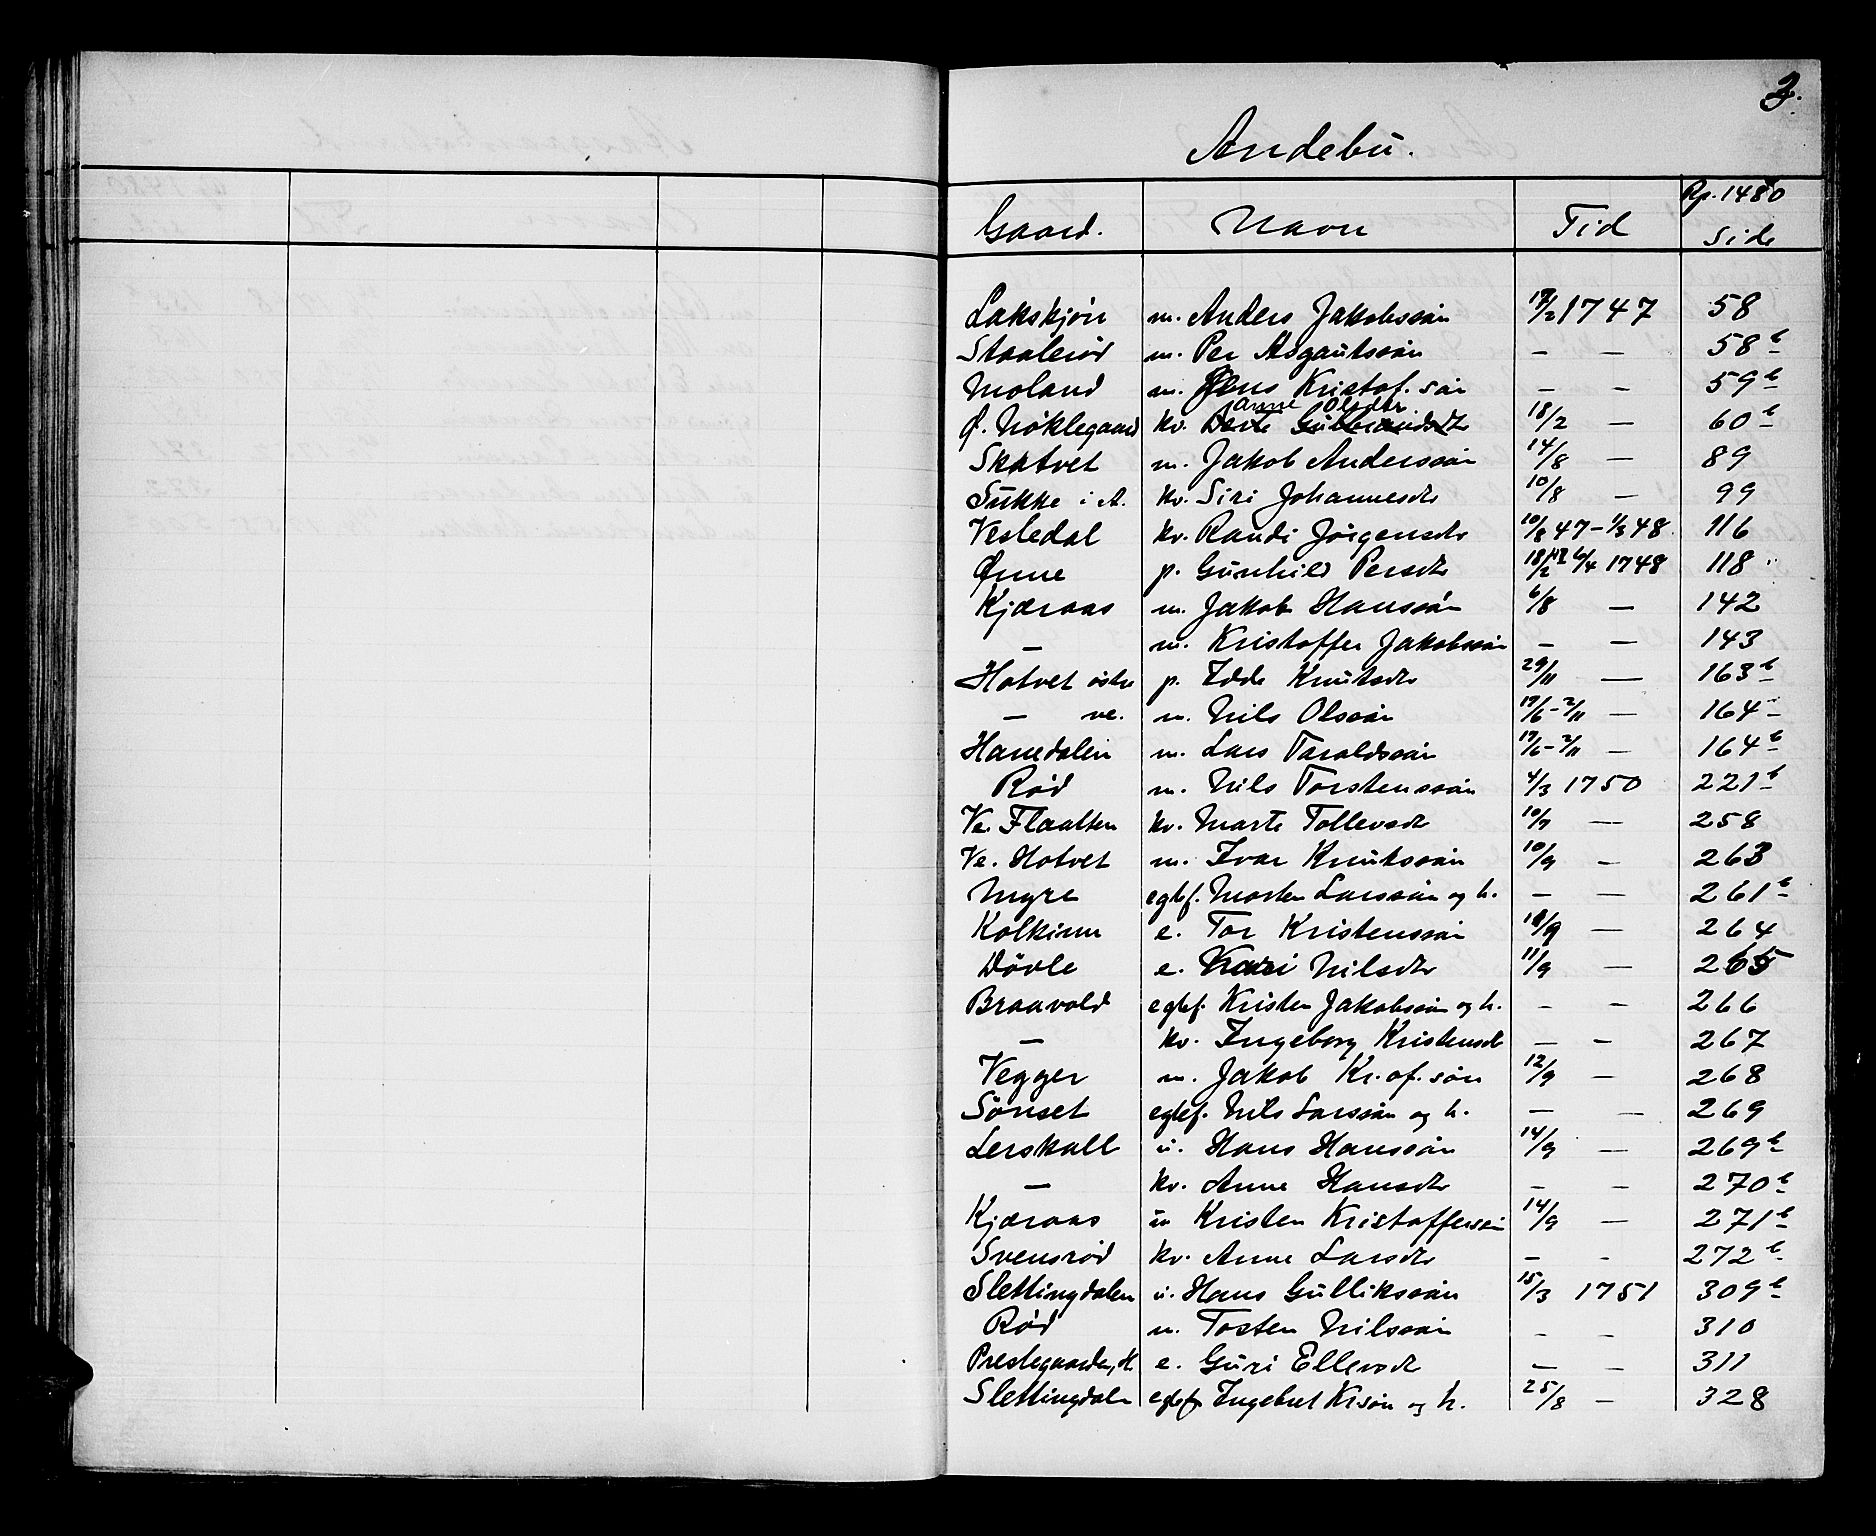 2.
Andebu.
Gaard. Navn Tid Rp. 1480 Side
Lakskjön m. Anders Jakobssön 17/2 1747 58
Staalerød m. Per Asgautssön — — 58b
Moland m. Jens Kristof. sön — — 59b
Ø. Nöklegaard kv. Anne Olsdtr. 18/2 — 60b
Skatvet m. Jakob Anderssön 14/8 — 89
Sukke i A. kv. Siri Johannesdtr 10/8 — 99
Vesledal kv. Randi Jörgensdtr 10/8 47 – 1/3 48 116
Ønne p. Gunhild Persdtr 18/12 6/4 1748 118
Kjæraas m. Jakob Hanssön 6/8 — 142
— m. Kristoffer Jakobssön — — 143
Hotvet östre p. Idde Knutsdtr 29/11 — 163b
— ve. m. Nils Olssön 19/6 – 2/11 — 164
Hanedalen m. Lars Taraldssön 19/6 – 2/11 — 164b
Rød m. Nils Torstenssön 4/3 1750 221b
Ve. Flaatten kv. Marte Tollevsdtr 10/9 — 258
Ve. Hotvet m. Ivar Knutssön 10/9 — 263
Myre egtef. Morten Larssön og h. — — 261b
Kolkinn e. Tor Kristenssön 10/9 — 264
Dövle e. Kari Nilsdtr 11/9 — 265
Braavold egtef. Kristen Jakobssön og h. — — 266
— kv. Ingeborg Kristensdt — — 267
Vegger m. Jakob Kr.of.sön 12/9 — 268
Sönset egtef. Nils Larssön og h. — — 269
Lerskall u. Hans Hanssön 14/9 — 269b
— kv. Anne Hansdtr — — 270b
Kjæraas u Kristen Kristofferssön 14/9 — 271b
Svensrød kv. Anne Larsdtr — — 272b
Slettingdalen u. Hans Gulliksson 15/3 1751 309b
Rød m. Tosten Nilssön — — 310
Prestegaarden, H. e. Guri Ellevsdt — — 311
Slettingdalen egtef. Ingebret Krsön og h. 25/8 — 328